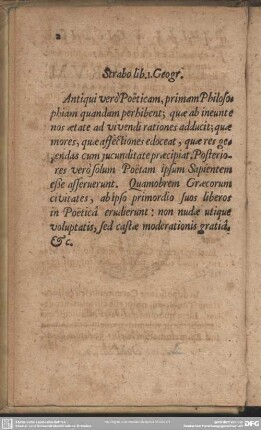 2
Strabo lib. 1. Geogr.
Antiqui verò Poëticam, primam Philoso-
phiam quandam perhibent; quæ ab ineunte
nos ætate ad vivendi rationes adducit; quæ
mores, quæ affectiones edoceat, quæ res ge-
rendas cum jucunditate præcipiat. Posterio-
res verò solum Poëtam ipsum Sapientem
esse asseruerunt. Quamobrem Græcorum
civitates, ab ipso primordio suos liberos
in Poëticâ erudierunt: non nudæ utique
voluptatis, sed castæ moderationis gratiâ,
&c.